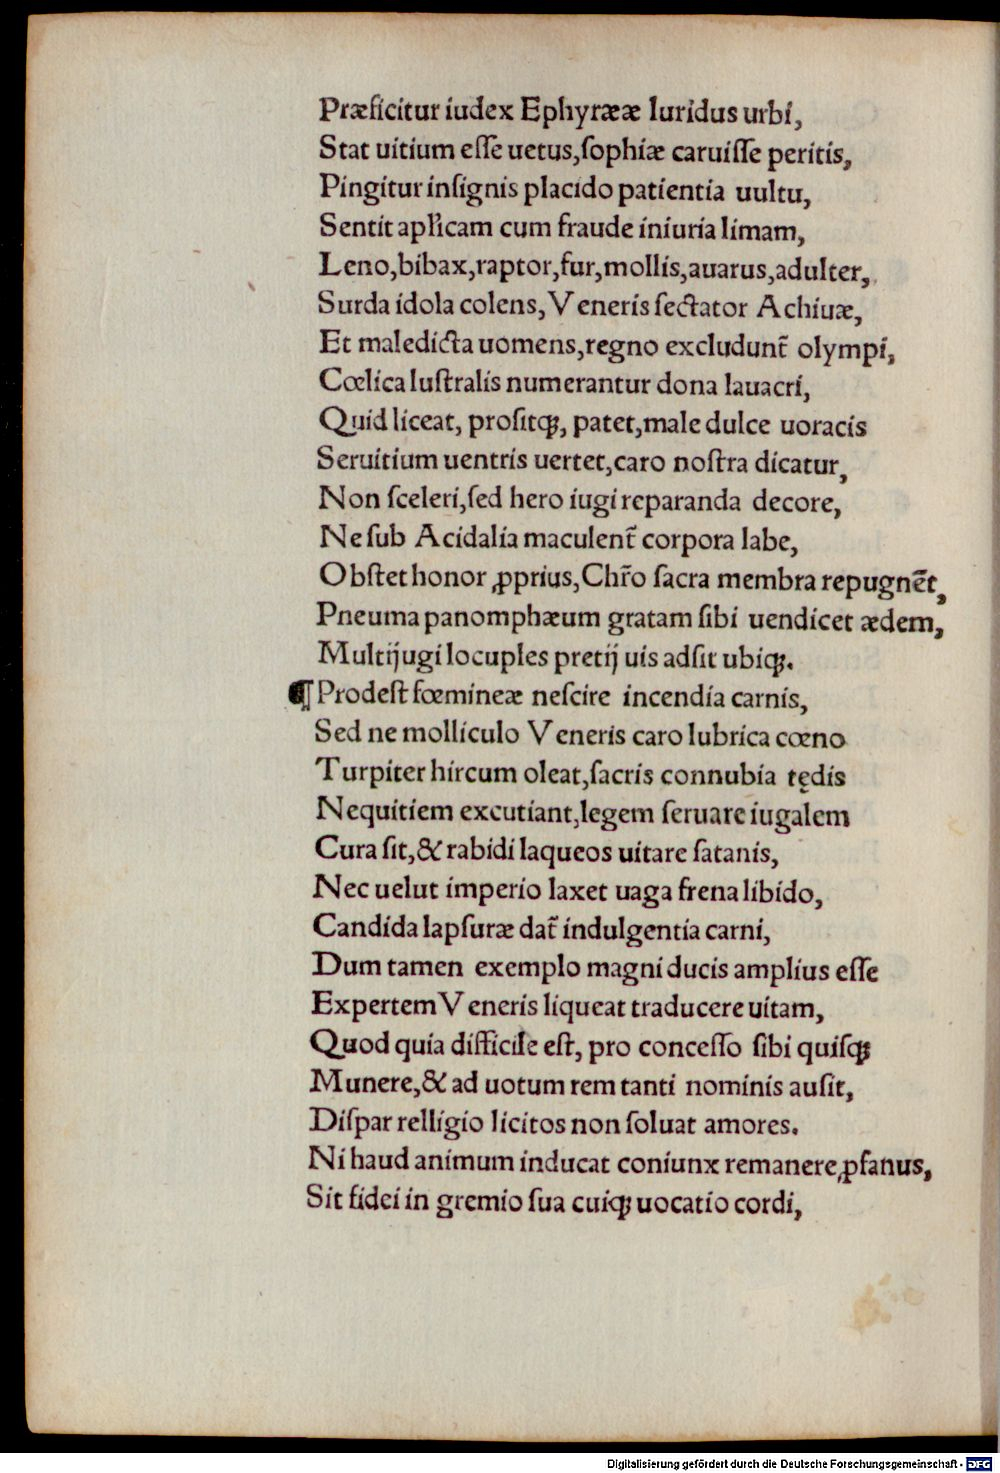 Præficitur iudex Ephyrææ luridus urbi,
Stat uitium eſſe uetus,ſophiæ caruiſſe peritis,
Pingitur inſignis placido patientia uultu,
Sentit apl'icam cum fraude iniuria limam,
Leno,bibax,raptor,fur,mollis,auarus,adulter,
Surda idola colens,Veneris ſectator Achiuæ,
Et maledicta uomens,regno excludunt̃ olympi,
Cœlica luſtralis numerantur dona lauacri,
Quid liceat, proſitqꝫ, patet,male dulce uoracis
Seruitium uentris uertet,caro noſtra dicatur,
Non ſceleri,ſed hero iugi reparanda decore,
Ne ſub Acidalia maculent̃ corpora labe,
Obſtet honor ꝓprius,Chr̃o ſacra membra repugnẽt,
Pneuma panomphæum gratam ſibi uendicet ædem,
Multijugi locuples pretij uis adſit ubiqꝫ.
¶Prodeſt fœmineæ neſcire incendia carnis,
Sed ne molliculo Veneris caro lubrica cœno
Turpiter hircum oleat,ſacris connubia tędis
Nequitiem excutiant,legem ſeruare iugalem
Cura ſit,& rabidi laqueos uitare ſatanis,
Nec uelut imperio laxet uaga frena libido,
Candida lapſuræ dat̃ indulgentia carni,
Dum tamen exemplo magni ducis amplius eſſe
Expertem Veneris liqueat traducere uitam,
Quod quia difficile eſt, pro conceſſo ſibi quiſqꝫ
Munere,& ad uotum rem tanti nominis auſit,
Diſpar relligio licitos non ſoluat amores.
Ni haud animum inducat coniunx remanere ꝓfanus,
Sit fidei in gremio ſua cuiqꝫ uocatio cordi,
Digitalisierung gefördert durch die Deutsche Forschungsgemeinschaft - DFG